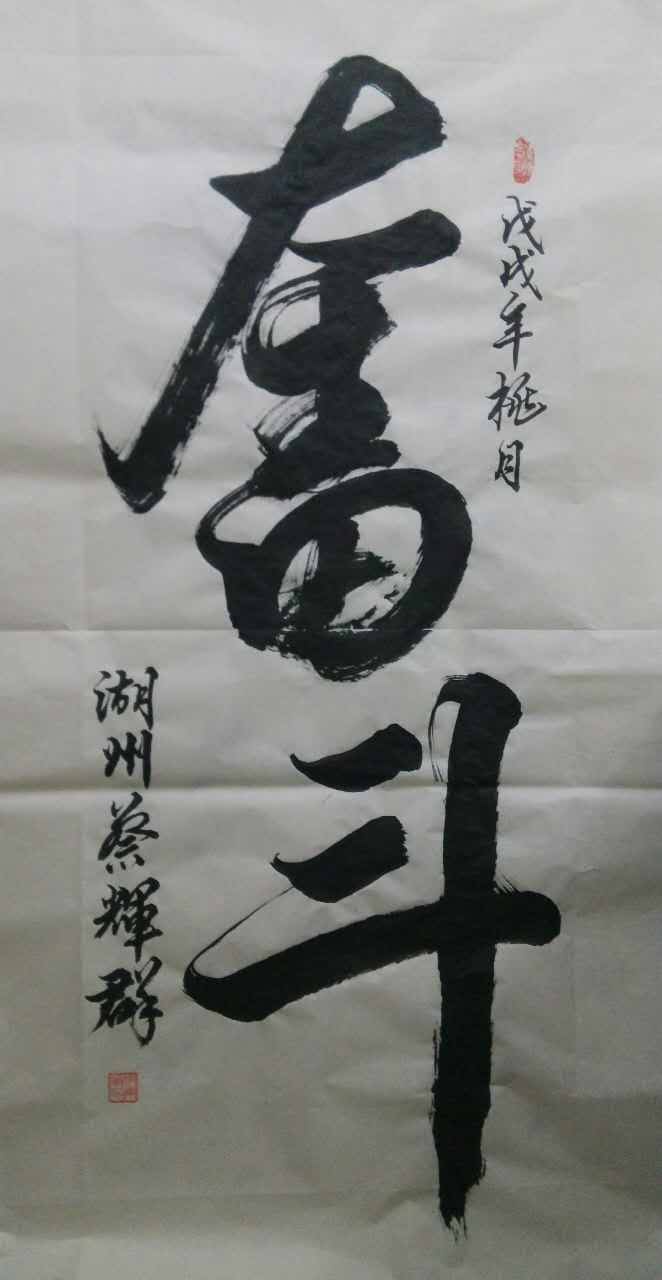 戊戌年桃月
奮斗
湖州蔡輝群